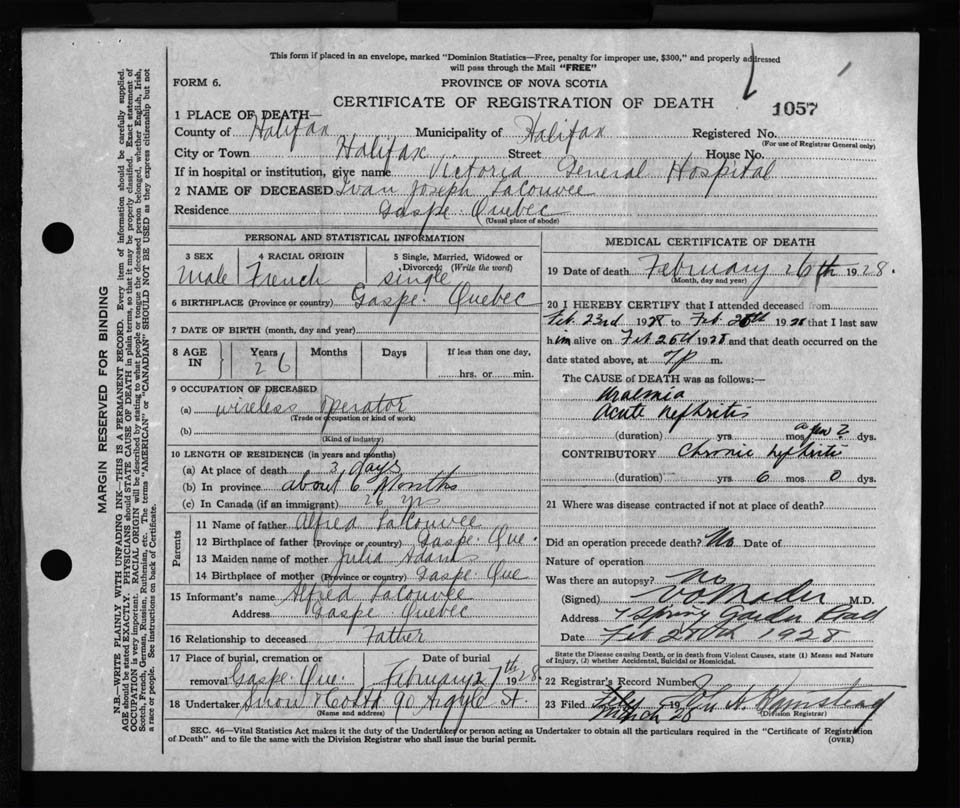 This form if placed in an envelope, marked "Dominion Statistics—Free, penalty for improper use, $300," and properly addressed
will pass through the Mail "FREE"
FORM 6.
PROVINCE OF NOVA SCOTIA
CERTIFICATE OF REGISTRATION OF DEATH
1057
1 PLACE OF DEATH—
County of Halifax Municipality of Halifax Registered No.
(For use of Registrar General only)
City or Town Halifax Street House No.
If in hospital or institution, give name Victoria General Hospital
2 NAME OF DECEASED Ivan Joseph LaCouvee
Residence Gaspe Quebec
(Usual place of abode)
PERSONAL AND STATISTICAL INFORMATION
3 SEX 4 RACIAL ORIGIN 5 Single, Married, Widowed or
Divorced: (Write the word)
Male French Single
6 BIRTHPLACE (Province or country) Gaspe. Quebec
7 DATE OF BIRTH (month, day and year)
8 AGE IN Years Months Days If less than one day,
26 hrs. or min.
9 OCCUPATION OF DECEASED
(a) wireless operator
(Trade or occupation or kind of work)
(b)
(Kind of industry)
10 LENGTH OF RESIDENCE (in years and months)
(a) At place of death 3 days
(b) In province about 6 Months
(c) In Canada (if an immigrant) 26 yrs
Parents
11 Name of father Alfred LaCouvee
12 Birthplace of father (Province or country) Gaspe. Que.
13 Maiden name of mother Julia Adams
14 Birthplace of mother (Province or country) Gaspe Que
15 Informant's name Alfred LaCouvee
Address Gaspe Quebec
16 Relationship to deceased Father
17 Place of burial, cremation or Date of burial
removal Gaspe. Que. February 27th 1928
18 Undertaker Snow & Co Ltd 90 Argyle St.
(Name and address)
MEDICAL CERTIFICATE OF DEATH
19 Date of death February 26th 1928.
(Month, day and year)
20 I HEREBY CERTIFY that I attended deceased from
Feb. 23rd 1928 to Feb 26th 1928 that I last saw
him alive on Feb 26th 1928 and that death occurred on the
date stated above, at 7 p m.
The CAUSE of DEATH was as follows:—
Uraemia
Acute Nephritis
(duration) yrs mos dys.
CONTRIBUTORY Chronic Nephritis
(duration) yrs 6 mos 0 dys.
21 Where was disease contracted if not at place of death?
Did an operation precede death? No Date of
Nature of operation
Was there an autopsy? No
(Signed) M.D.
Address Spring Garden Road
Date Feb 28th 1928
State the Disease causing Death, or in death from Violent Causes, state (1) Means and Nature
of Injury, (2) whether Accidental, Suicidal or Homicidal.
22 Registrar's Record Number
23 Filed 19
March 28
(Division Registrar)
SEC. 46—Vital Statistics Act makes it the duty of the Undertaker or person acting as Undertaker to obtain all the particulars required in the "Certificate of Registration
of Death" and to file the same with the Division Registrar who shall issue the burial permit.
(OVER)
MARGIN RESERVED FOR BINDING
N.B.—WRITE PLAINLY WITH UNFADING INK—THIS IS A PERMANENT RECORD. Every item of information should be carefully supplied.
AGE should be stated EXACTLY. PHYSICIANS should STATE CAUSE OF DEATH in plain terms, so that it may be properly classified. Exact statement of
OCCUPATION is very important. RACIAL ORIGIN will be described by stating to what people or tongue the deceased person belonged, whether English, Irish,
Scotch, French, German, Russian, Ruthenian, etc. The terms "AMERICAN" or "CANADIAN" SHOULD NOT BE USED as they express citizenship but not
a race or people. See instructions on back of Certificate.